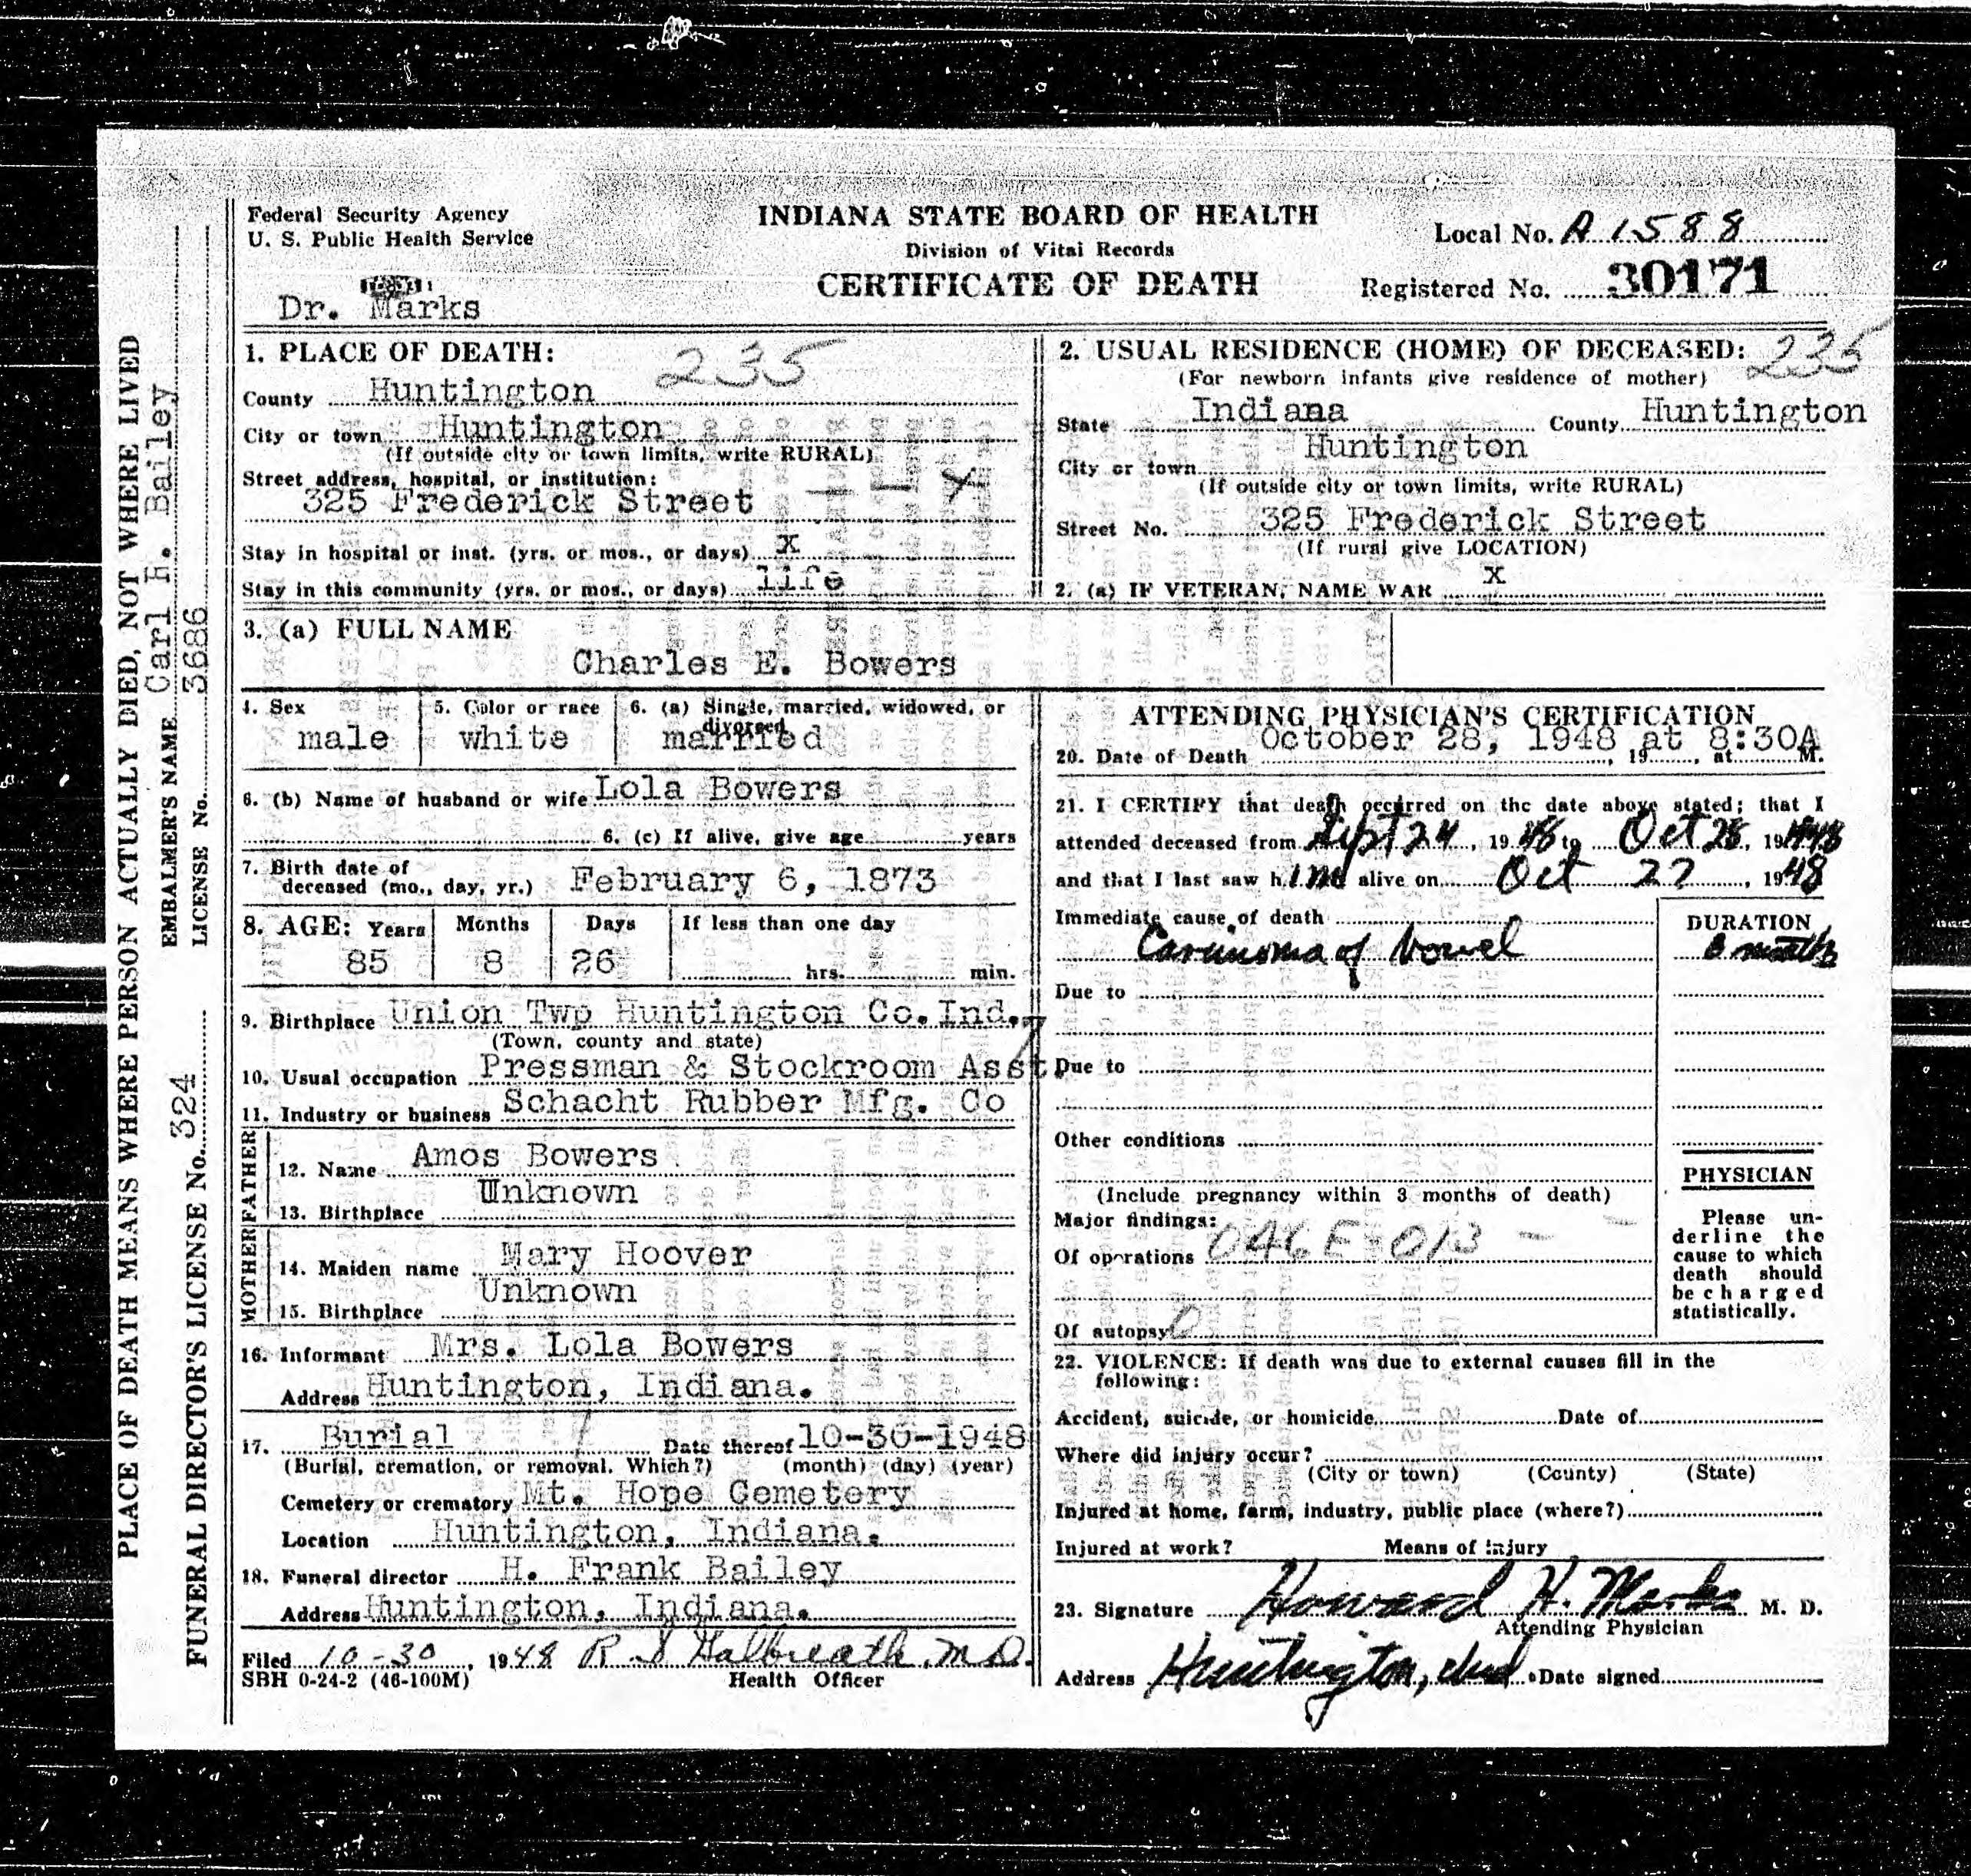 Federal Security Agency
U. S. Public Health Service
INDIANA STATE BOARD OF HEALTH
Division of Vital Records
CERTIFICATE OF DEATH
Local No. A 1588
Registered No. 30171
Dr. Marks
1. PLACE OF DEATH: 235
County Huntington
City or town Huntington
(If outside city or town limits, write RURAL)
Street address, hospital, or institution:
325 Frederick Street — — X
Stay in hospital or inst. (yrs. or mos., or days) X
Stay in this community (yrs. or mos., or days) life
2. USUAL RESIDENCE (HOME) OF DECEASED: 235
(For newborn infants give residence of mother)
State Indiana County Huntington
City or town Huntington
(If outside city or town limits, write RURAL)
Street No. 325 Frederick Street
(If rural give LOCATION)
2. (a) IF VETERAN, NAME WAR X
3. (a) FULL NAME
Charles E. Bowers
4. Sex
male
5. Color or race
white
6. (a) Single, married, widowed, or
divorced
married
6. (b) Name of husband or wife Lola Bowers
6. (c) If alive, give age years
7. Birth date of
deceased (mo., day, yr.) February 6, 1873
8. AGE: Years Months Days If less than one day
85 8 26 hrs. min.
9. Birthplace Union Twp Huntington Co. Ind.
(Town, county and state)
10. Usual occupation Pressman & Stockroom Asst
11. Industry or business Schacht Rubber Mfg. Co
FATHER
12. Name Amos Bowers
13. Birthplace Unknown
MOTHER
14. Maiden name Mary Hoover
15. Birthplace Unknown
16. Informant Mrs. Lola Bowers
Address Huntington, Indiana.
17. Burial Date thereof 10-30-1948
(Burial, cremation, or removal. Which?) (month) (day) (year)
Cemetery or crematory Mt. Hope Cemetery
Location Huntington, Indiana.
18. Funeral director H. Frank Bailey
Address Huntington, Indiana.
Filed 10-30, 1948 R S Galbreath, M.D.
SBH 0-24-2 (46-100M) Health Officer
ATTENDING PHYSICIAN'S CERTIFICATION
20. Date of Death October 28, 1948 at 8:30A
, 19 , at M.
21. I CERTIFY that death occurred on the date above stated; that I
attended deceased from Sept 24, 1948 to Oct 28, 1948
and that I last saw h im alive on Oct 27, 1948
Immediate cause of death
Carcinoma of bowel
DURATION
months
Due to
Due to
Other conditions
(Include pregnancy within 3 months of death)
Major findings:
Of operations 046E-013 -
Of autopsy 0
PHYSICIAN
Please un-
derline the
cause to which
death should
be charged
statistically.
22. VIOLENCE: If death was due to external causes fill in the
following:
Accident, suicide, or homicide Date of
Where did injury occur?
(City or town) (County) (State)
Injured at home, farm, industry, public place (where?)
Injured at work? Means of injury
23. Signature Howard H. Marks M. D.
Attending Physician
Address Huntington, Ind. Date signed
PLACE OF DEATH MEANS WHERE PERSON ACTUALLY DIED, NOT WHERE LIVED
EMBALMER'S NAME Carl R. Bailey
FUNERAL DIRECTOR'S LICENSE No. 324 LICENSE No. 3686